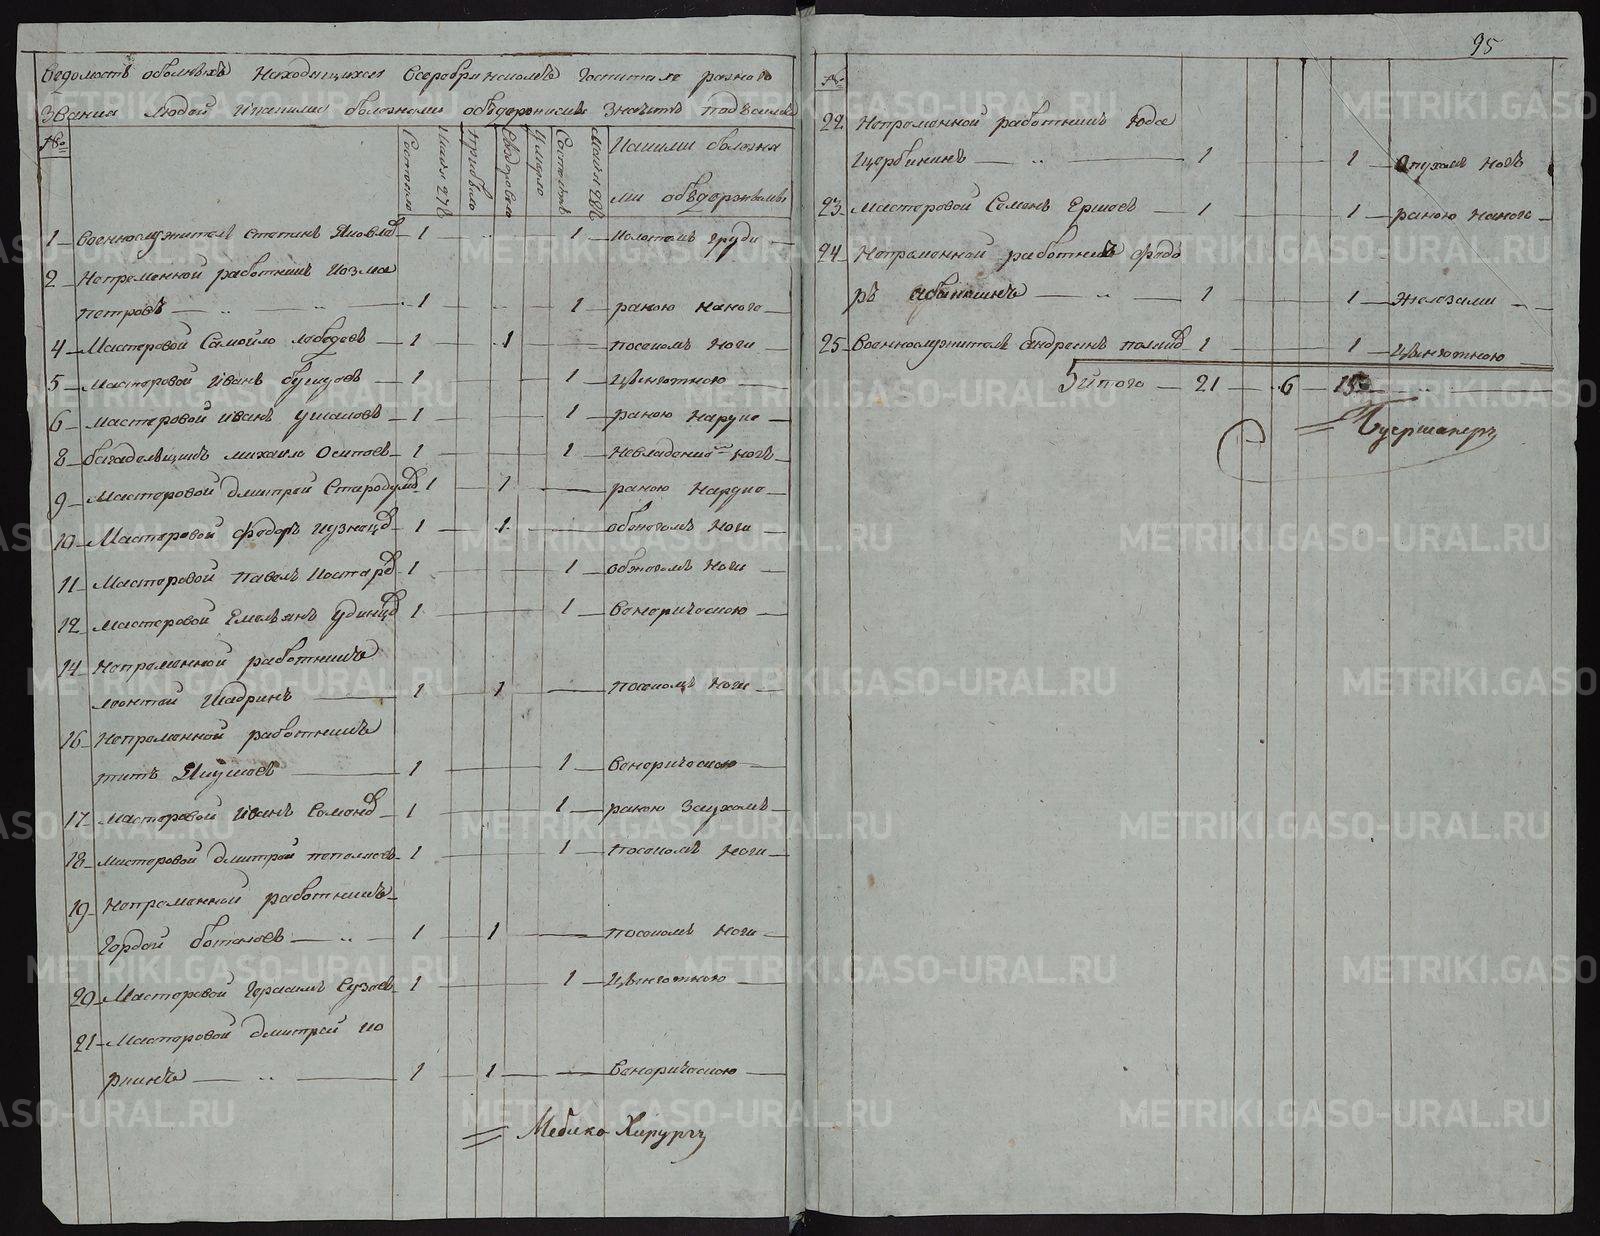 95
Ведомость оболныхъ находящихся Всеребрянскомъ госпитале разного
звания людей икакими болезнами обѣдержимы значитъ подъсимъ
№
Состояло
Июля 27 В
прибыло
Выздоровело
Умерло
Состоитъ
Июля 28 В
Какими болезня
ми объдержимы
1 Военнослужитель степанъ Яковлев 1 1 Колотьемъ груди
2 Непременной работникъ Козма
петровъ 1 1 раною наноге
4 Мастеровой Самойло лебедевъ 1 1 посекомъ ноги
5 Мастеровой Иванъ бушуевъ 1 1 Цынготною
6 Мастеровой иванъ ушаковъ 1 1 раною наруке
8 багаделщикъ михаило Осиповъ 1 1 Невладение ногъ
9 Мастеровой дмитрей Стародумов 1 1 раною наруке
10 Мастеровой Федоръ Кузнецов 1 1 обжогомъ ноги
11 Мастеровой павелъ Костарев 1 1 обжогомъ ноги
12 Мастеровой Емельянъ Удинцов 1 1 Венерическою
14 Непременной работникъ
леонтей Шадринъ 1 1 посекомъ ноги
16 Непременной работникъ
титъ Якушевъ 1 1 Венерическою
17 Мастеровой иванъ Семенов 1 1 раною Заухомъ
18 Мастеровой дмитрей 1 1 посекомъ ноги
19 Непременной работникъ
Гордей боталовъ 1 1 посекомъ ноги
20 Мастеровой Герасимъ Сузоевъ 1 1 Цынготною
21 Мастеровой дмитрей ко
ркинъ 1 1 Венерическою
Медико Хирургъ
№
22 Непременной работникъ Юда
Щербининъ 1 1 Опухолъ ногъ
23 Мастеровой Семенъ Ершовъ 1 1 раною наноге
24 Непременной работникъ федо
ръ 1 1 Железами
25 Военнослужитель андреянъ 1 1 Цынготною
итого 21 6 15